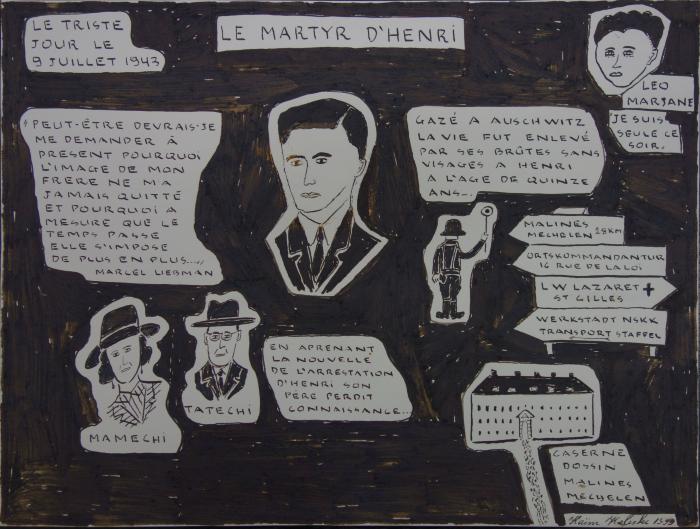 LE TRISTE
JOUR LE
9 JUILLET 1943
LE MARTYR D'HENRI
LEO
MARJANE
JE SUIS
SEULE CE
SOIR.
"PEUT-ÊTRE DEVRAIS-JE
ME DEMANDER À
PRESENT POURQUOI
L'IMAGE DE MON
FRERE NE M'A
JAMAIS QUITTÉ
ET POURQUOI A
MESURE QUE LE
TEMPS PASSE
ELLE S'IMPOSE
DE PLUS EN PLUS....,
MARCEL LIEBMAN
GAZÉ A AUSCHWITZ
LA VIE FUT ENLEVÉ
PAR SES BRÛTES SANS
VISAGES A HENRI
A L'AGE DE QUINZE
ANS...
MALINES
MECHELEN 18KM
ORTSKOMMANDANTUR
16 RUE DE LA LOI
LW LAZARET +
ST GILLES
WERKSTADT NSKK
TRANSPORT STAFFEL
MAMECHI
TATECHI
EN APRENANT
LA NOUVELLE
DE L'ARRESTATION
D'HENRI SON
PÈRE PERDIT
CONNAISSANCE...
CASERNE
DOSSIN
MALINES
MECHELEN